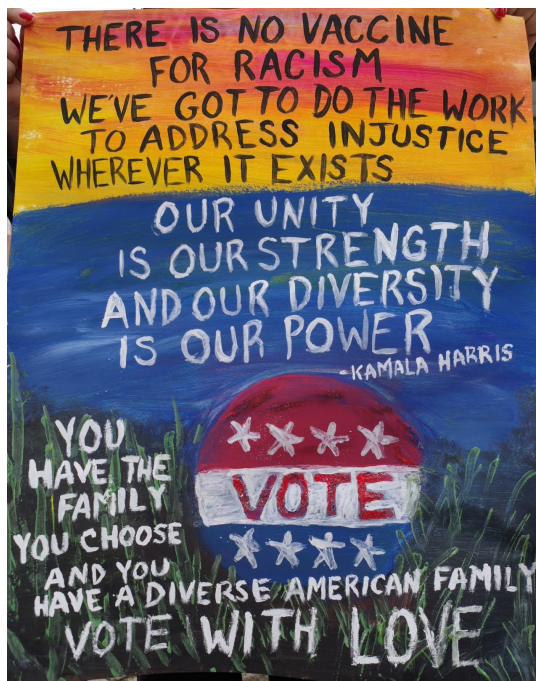 THERE IS NO VACCINE
FOR RACISM
WE'VE GOT TO DO THE WORK
TO ADDRESS INJUSTICE
WHEREVER IT EXISTS
OUR UNITY
IS OUR STRENGTH
AND OUR DIVERSITY
IS OUR POWER
-KAMALA HARRIS
VOTE
YOU
HAVE THE
FAMILY
YOU CHOOSE
AND YOU
HAVE A DIVERSE AMERICAN FAMILY
VOTE WITH LOVE